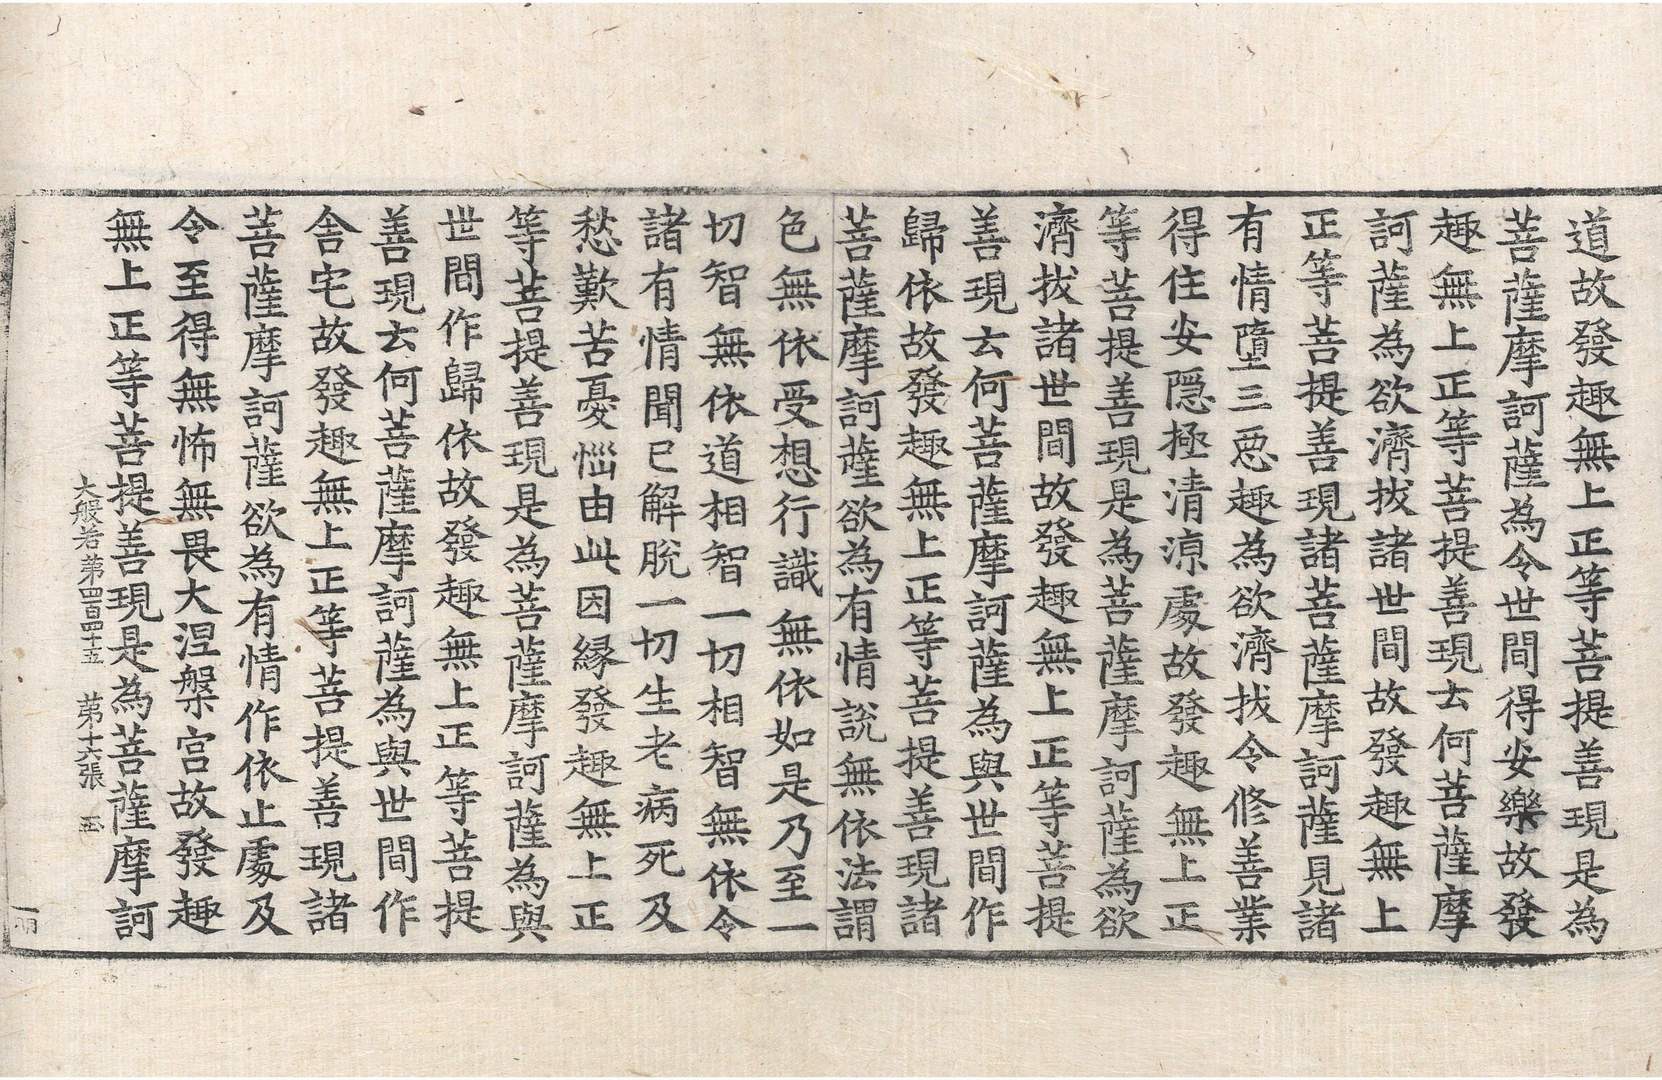 道故發趣無上正等菩提善現是為
菩薩摩訶薩為令世間得安樂故發
趣無上正等菩提善現云何菩薩摩
訶薩為欲濟拔諸世間故發趣無上
正等菩提善現諸菩薩摩訶薩見諸
有情墮三惡趣為欲濟拔令修善業
得住安隱極清涼處故發趣無上正
等菩提善現是為菩薩摩訶薩為欲
濟拔諸世間故發趣無上正等菩提
善現云何菩薩摩訶薩為與世間作
歸依故發趣無上正等菩提善現諸
菩薩摩訶薩欲為有情說無依法謂
色無依受想行識無依如是乃至一
切智無依道相智一切相智無依令
諸有情聞已解脫一切生老病死及
愁歎苦憂惱由此因緣發趣無上正
等菩提善現是為菩薩摩訶薩為與
世間作歸依故發趣無上正等菩提
善現云何菩薩摩訶薩為與世間作
舍宅故發趣無上正等菩提善現諸
菩薩摩訶薩欲為有情作依止處及
令至得無怖無畏大涅槃宮故發趣
無上正等菩提善現是為菩薩摩訶
大般若第四百四十五 第十六張